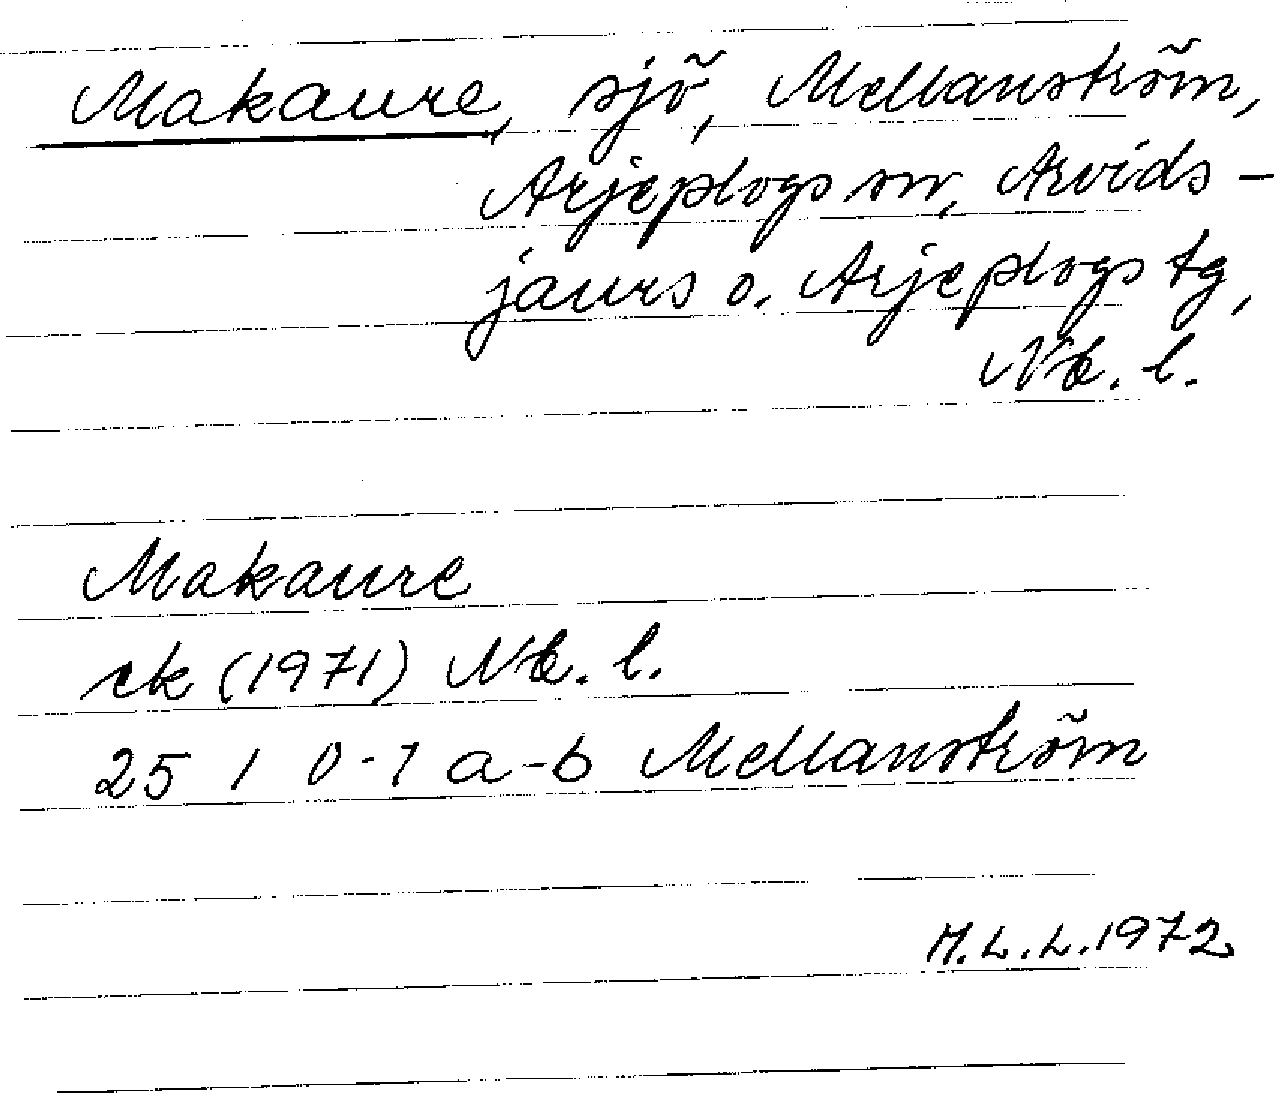 Makaure, sjö, Mellanström,
Arjeplogs sn, Arvids-
jaurs o. Arjeplogs tg,
Nb. l.
Makaure
ek (1971) Nb. l.
25 I 0-1 a-b Mellanström
M.L.L. 1972